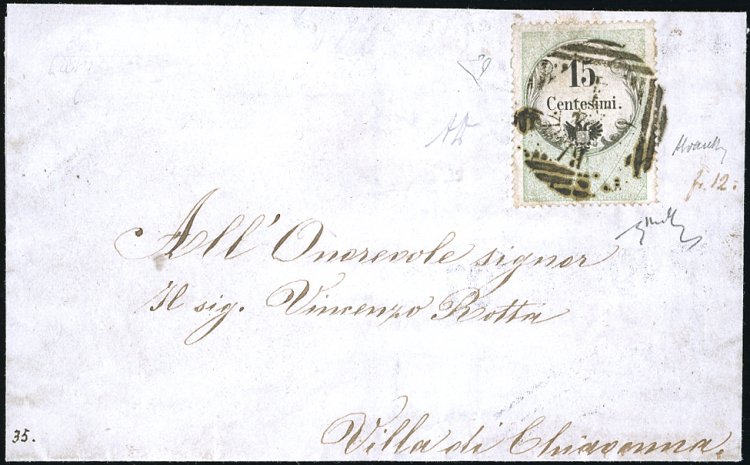 15
Centesimi.
fr. 12:
All' Onorevole signor
Il sig. Vincenzo Rotta
Villa di Chiavenna.
35.